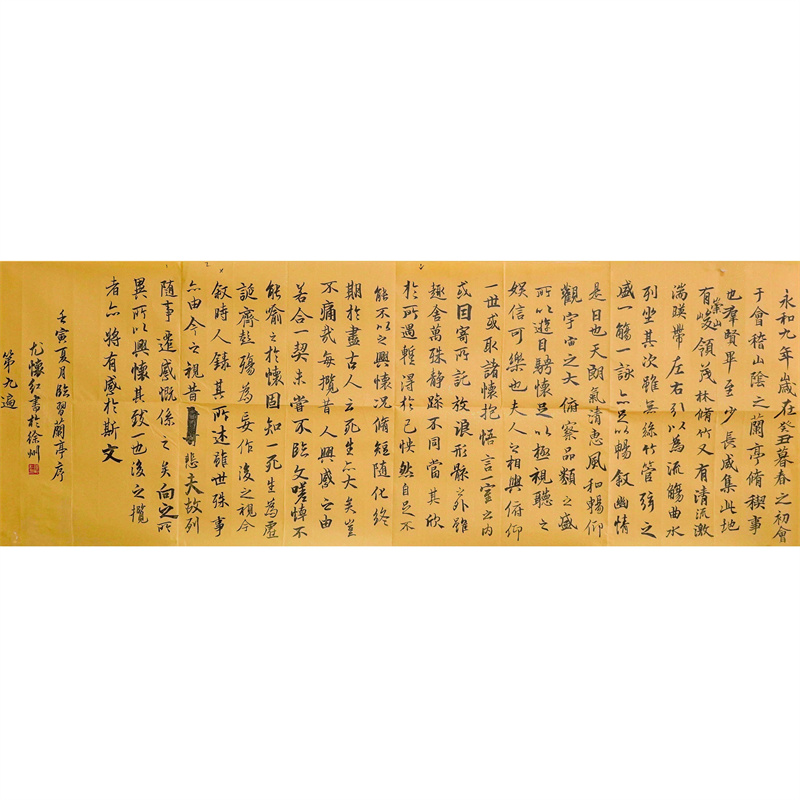 永和九年歲在癸丑暮春之初會
于會稽山陰之蘭亭脩稧事
也群賢畢至少長咸集此地
有崇山峻領茂林脩竹又有清流激
湍暎帶左右引以為流觴曲水
列坐其次雖無絲竹管弦之
盛一觴一詠亦足以暢敘幽情
是日也天朗氣清惠風和暢仰
觀宇宙之大俯察品類之盛
所以遊目騁懷足以極視聽之
娛信可樂也夫人之相與俯仰
一世或取諸懷抱悟言一室之內
或因寄所託放浪形骸之外雖
趣舍萬殊静躁不同當其欣
於所遇輕得於己怏然自足不
能不以之興懷況脩短隨化終
期於盡古人云死生亦大矣豈
不痛哉每攬昔人興感之由
若合一契未嘗不臨文嗟悼不
能喻之於懷固知一死生為虛
誕齊彭殤為妄作後之視今
敘時人錄其所述雖世殊事
亦由今之視昔悲夫故列
隨事遷感慨係之矣向之所
異所以興懷其致一也後之攬
者亦將有感於斯文
壬寅夏月臨習蘭亭序
尤懷紅書於徐州
第九遍